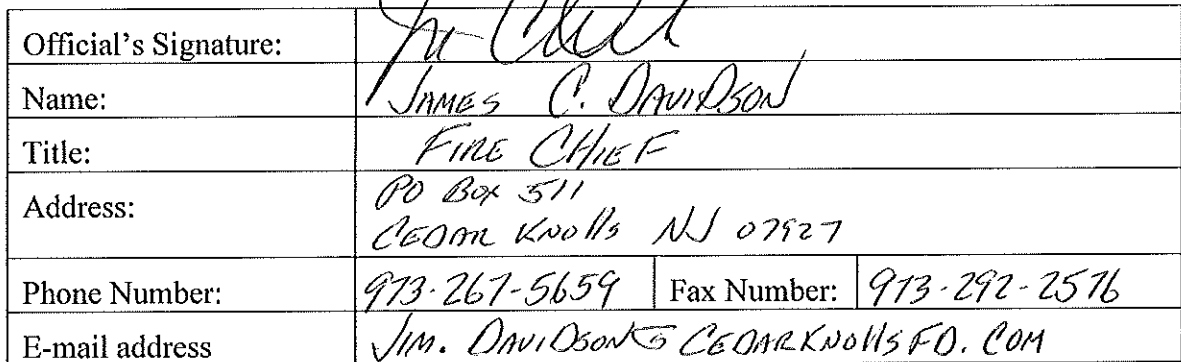 Official's Signature:
Name: JAMES C. DAVIDSON
Title: FIRE CHIEF
Address: PO BOX 511
CEDAR KNOLLS NJ 07927
Phone Number: 973-267-5659 Fax Number: 973-292-2576
E-mail address JIM.DAVIDSON@CEDARKNOLLSFD.COM